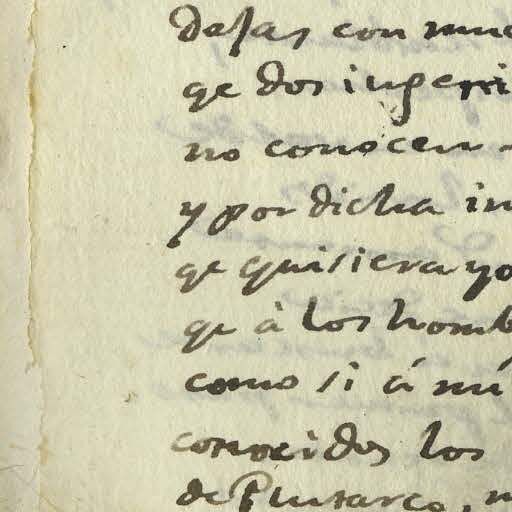 con
qe dos ingeni
no conocen
y por dicha in
qe quisiera yo
qe à los homb
como si á mi
conocidos los
de Plutarco,